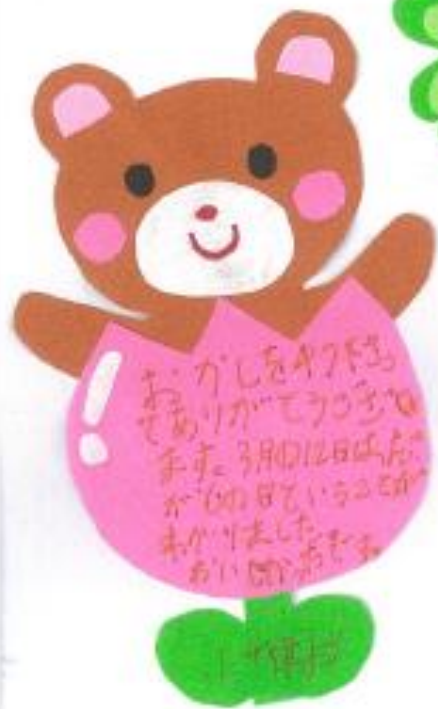 おかしを下さっ
てありがとうござい
ます。3月の12日は、だ
がしの日ということが
わかりました
おいしかったです。